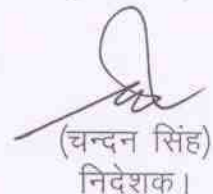 (चन्दन सिंह)
निदेशक।